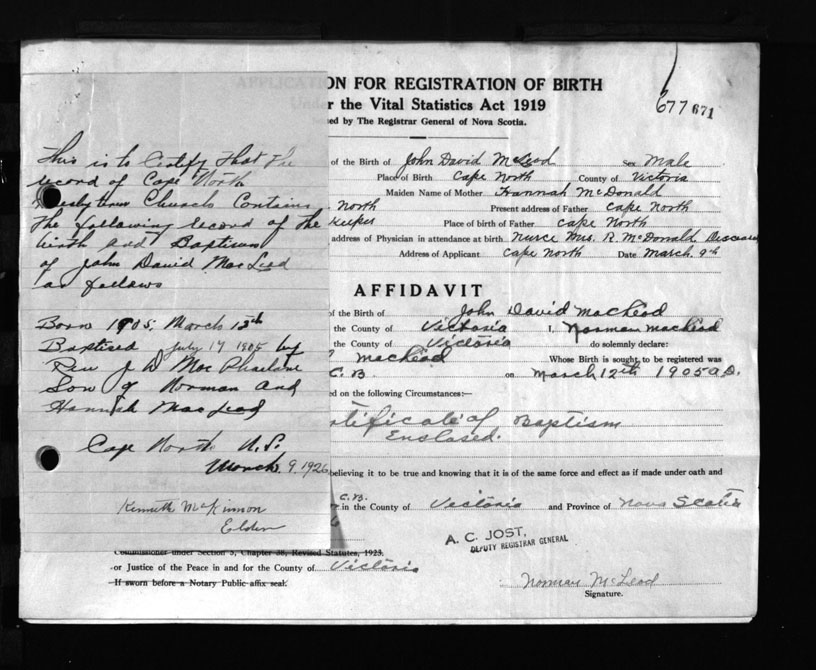 This is to Certify That the
record of Cape North
Presbyterian Church Contains
The following record of the
birth and Baptism
of John David MacLeod
as follows
Born 1905 March 12th
Baptised July 17 1905 by
Rev J D MacPharlane
Son of Norman and
Hannah MacLeod
Cape North N.S.
March 9. 1926
Kenneth McKinnon
Elder
APPLICATION FOR REGISTRATION OF BIRTH
Under the Vital Statistics Act 1919
ed by The Registrar General of Nova Scotia.
677 671
of the Birth of John David McLeod Sex Male
Place of Birth Cape North County of Victoria
Maiden Name of Mother Hannah McDonald
North Present address of Father Cape North
Keeper Place of birth of Father Cape North
address of Physician in attendance at birth Nurce Mrs. R. McDonald Disceased
Address of Applicant Cape North Date March. 9th
AFFIDAVIT
of the Birth of John David MacLeod
the County of Victoria I, Norman MacLeod
the County of Victoria do solemnly declare:
MacLeod Whose Birth is sought to be registered was
C. B. on March 12th 1905 A.D.
ed on the following Circumstances:—
tificate of Baptism
Enclosed.
believing it to be true and knowing that it is of the same force and effect as if made under oath and
C.B.
in the County of Victoria and Province of Nova Scotia
A. C. JOST,
DEPUTY REGISTRAR GENERAL
Commissioner under Section 5, Chapter 38, Revised Statutes, 1923.
or Justice of the Peace in and for the County of Victoria
If sworn before a Notary Public affix seal.
Norman McLeod
Signature.